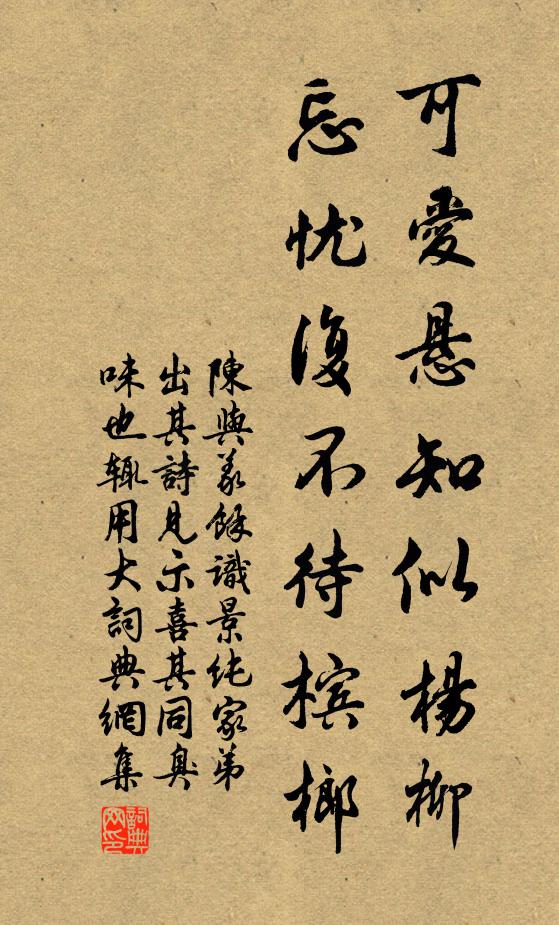 可愛悬知似楊柳
忘忧復不待槟榔
陳與義餘識景纯家弟
出其詩見示喜其同臭
味也辄用大詞典網集
詞典网印